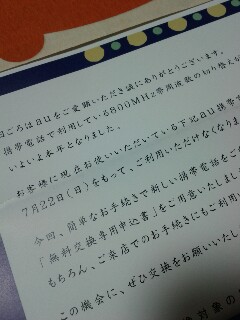 日ごろはauをご愛顧いただき誠にありがとうございます。
携帯電話で利用している800MHz帯周波数の切り替えが
いよいよ本年となりました。
お客様に現在お使いいただいている下記au携帯電話
7月22日(日)をもって、ご利用いただけなくなります
今回、簡単なお手続きで新しい携帯電話をご
「無料交換専用申込書」をご用意いたしました
もちろん、ご来店でのお手続きにもご利用
この機会に、ぜひ交換をお願いいたし
対象の